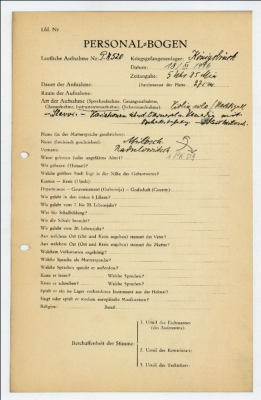 Lfd. Nr.
PERSONAL-BOGEN
Lautliche Aufnahme Nr.: P.K. 520
Kriegsgefangenenlager: Königsbrück
Datum:
Zeitangabe: 5 Uhr 25 Min
Dauer der Aufnahme:
Durchmesser der Platte: 27 cm
Raum der Aufnahme:
Art der Aufnahme (Sprechaufnahme, Gesangsaufnahme,
Choraufnahme, Instrumentenaufnahme, Orchesteraufnahme): Violin solo
Variationen
Name (in der Muttersprache geschrieben):
Name (lateinisch geschrieben):
Vorname:
Wann geboren (oder ungefähres Alter)?
Wo geboren (Heimat)?
Welche größere Stadt liegt in der Nähe des Geburtsortes?
Kanton — Kreis (Ujedz):
Departement — Gouvernement (Gubernija) — Grafschaft (County):
Wo gelebt in den ersten 6 Jahren?
Wo gelebt vom 7. bis 20. Lebensjahr?
Was für Schulbildung?
Wo die Schule besucht?
Wo gelebt vom 20. Lebensjahr?
Aus welchem Ort (Ort und Kreis angeben) stammt der Vater?
Aus welchem Ort (Ort und Kreis angeben) stammt die Mutter?
Welchem Volksstamm angehörig?
Welche Sprache als Muttersprache?
Welche Sprachen spricht er außerdem?
Kann er lesen? Welche Sprachen?
Kann er schreiben? Welche Sprachen?
Spielt er ein im Lager vorhandenes Instrument aus der Heimat?
Singt oder spielt er moderne europäische Musikweisen?
Religion: Beruf:
Beschaffenheit der Stimme:
1. Urteil des Fachmannes
(des Assistenten):
2. Urteil des Kommissars:
3. Urteil des Technikers: